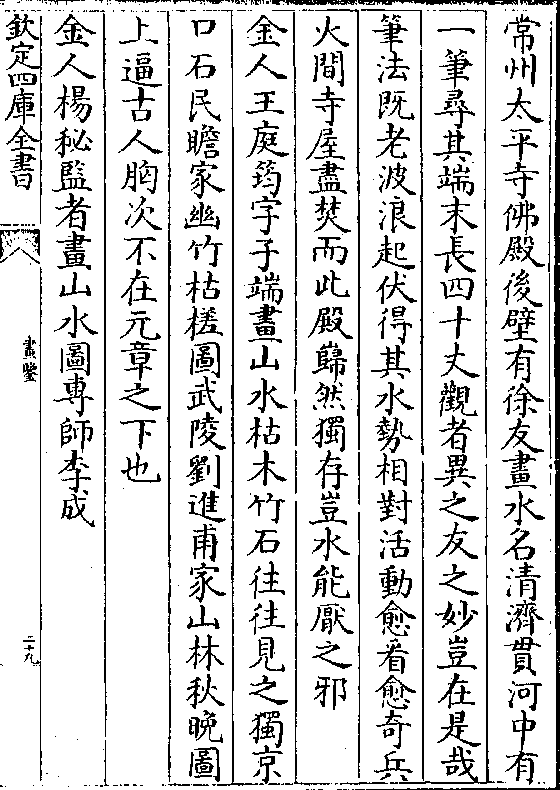 常州太平寺佛殿後壁有徐友畫水名清濟貫河中有
一筆尋其端末長四十丈觀者異之友之妙豈在是哉
筆法既老波浪起伏得其水勢相對活動愈看愈奇兵
火間寺屋盡焚而此殿巋然獨存豈水能厭之邪
金人王庭筠字子端畫山水枯木竹石往往見之獨京
口石民瞻家幽竹枯槎圖武陵劉進甫家山林秋晩圖
上逼古人胸次不在元章之下也
金人楊秘監者畫山水圖專師李成
欽定四庫全書
畫鑒
二十九